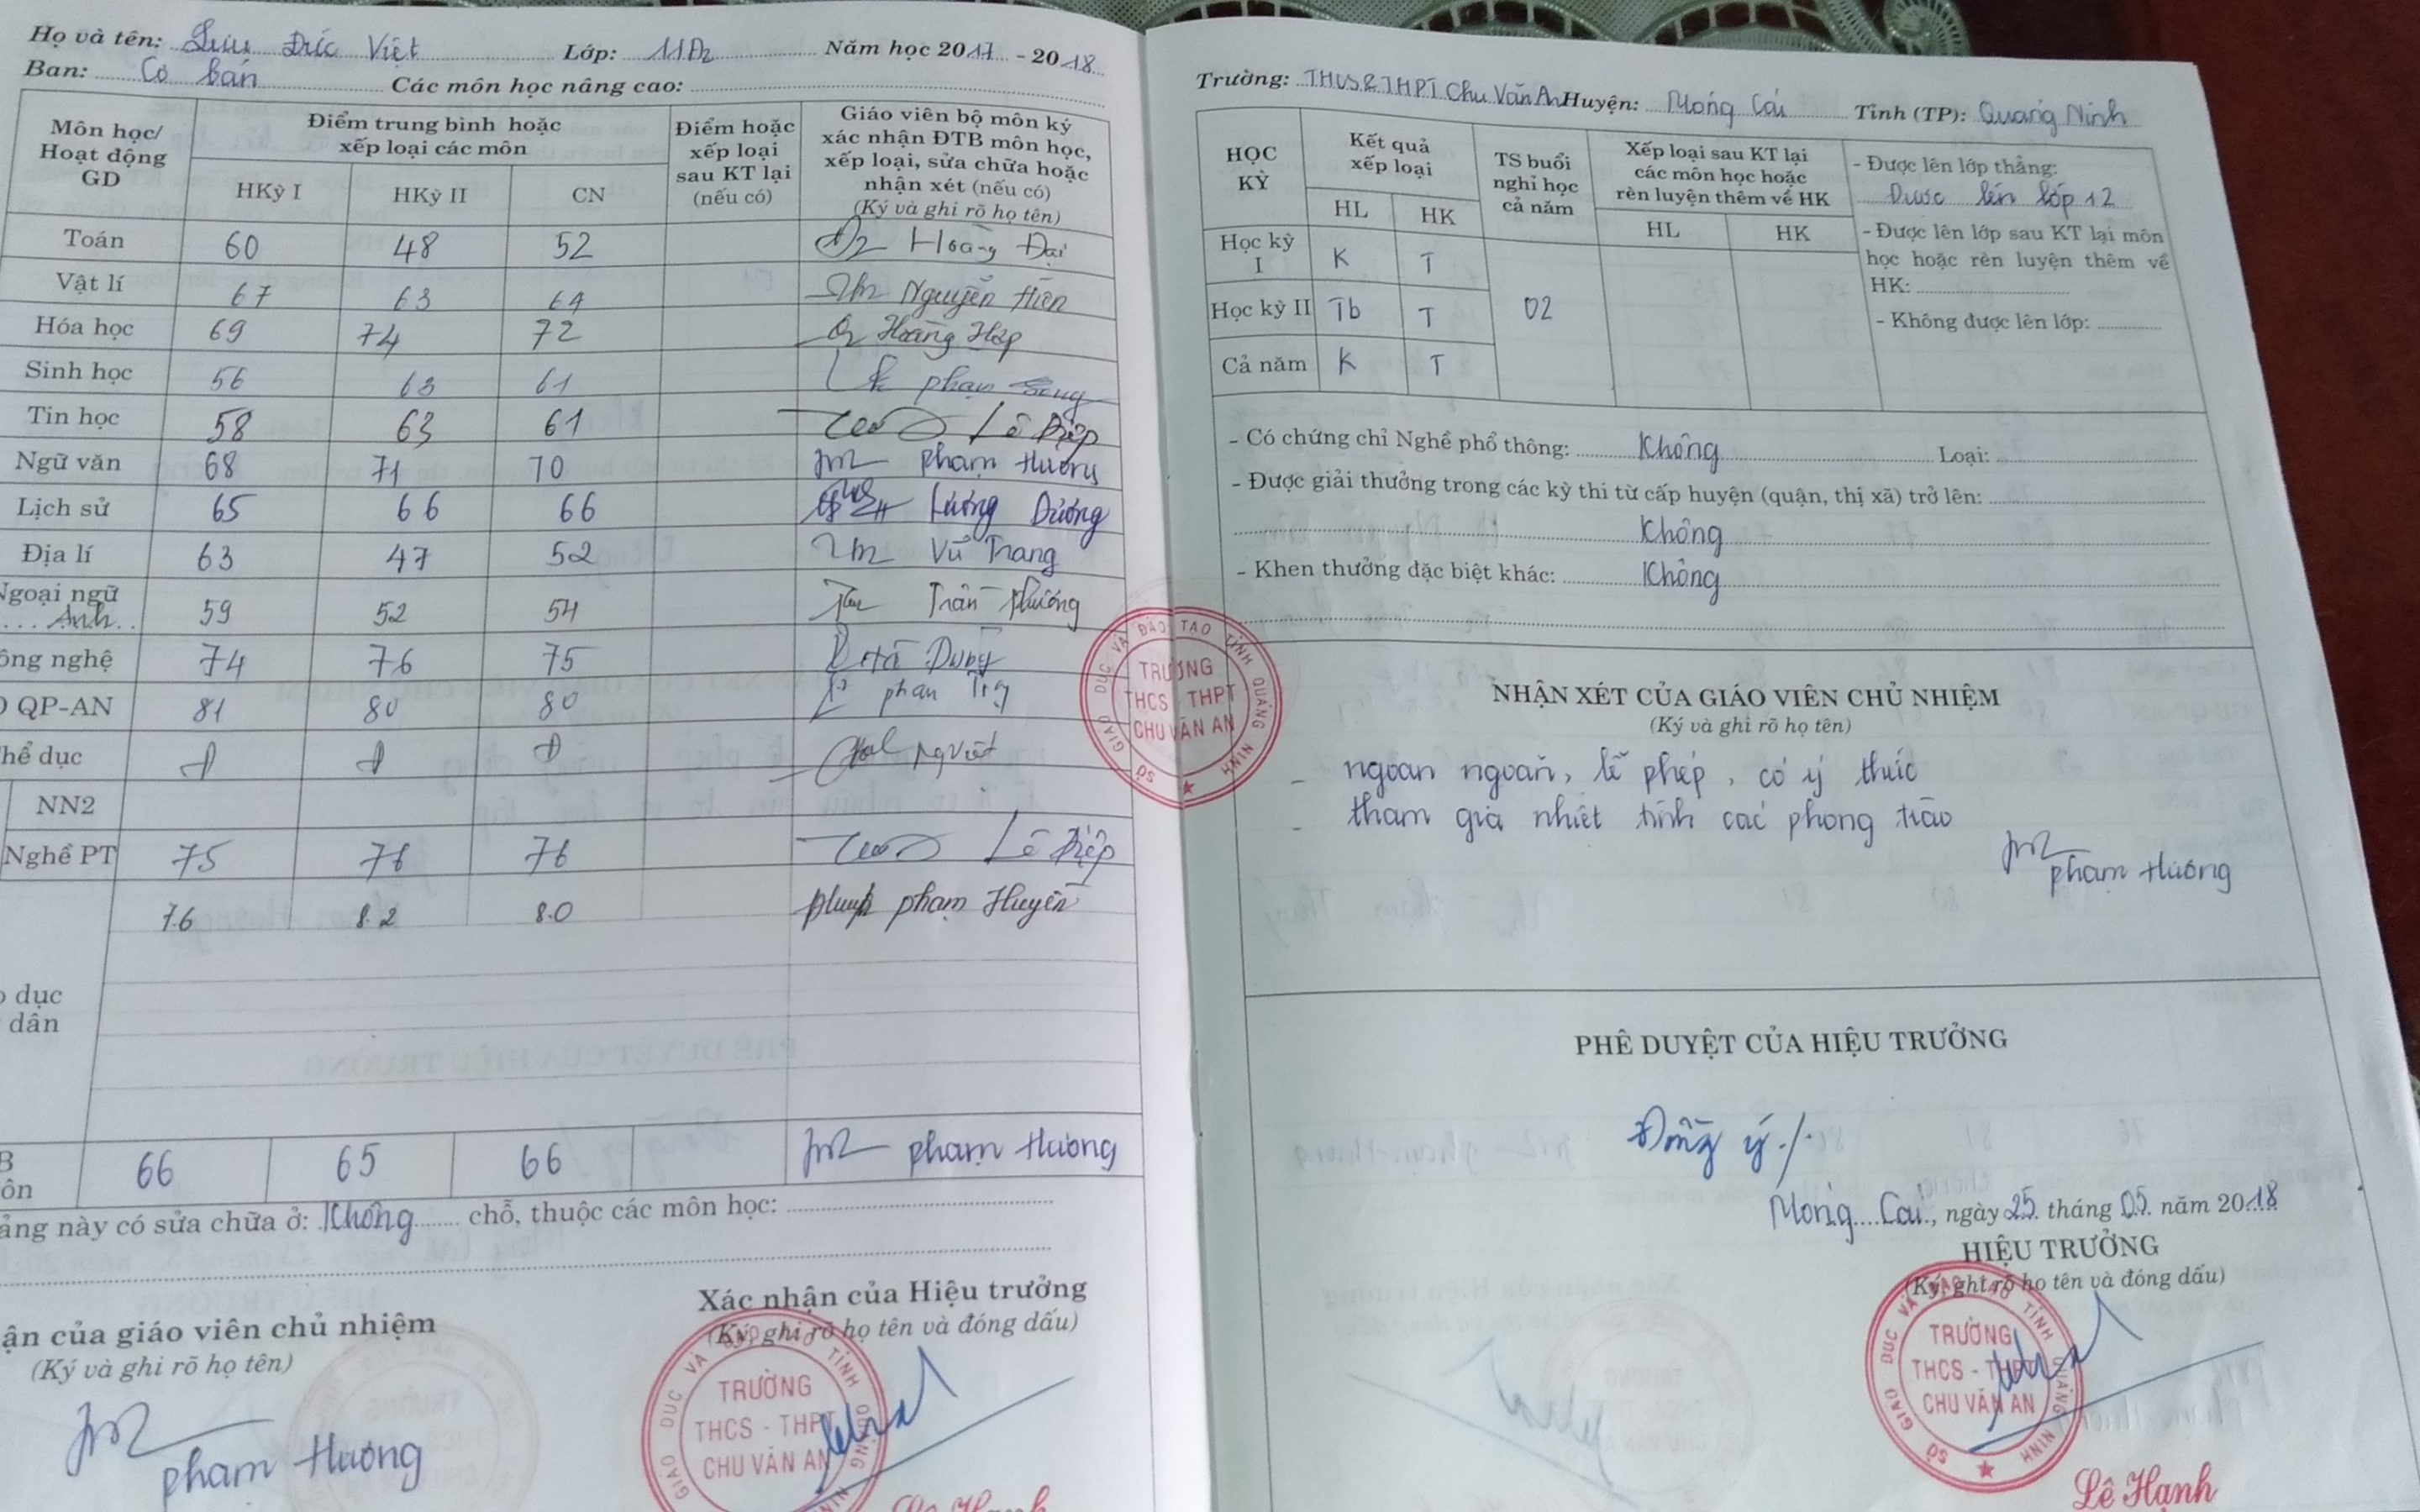 Họ và tên: Lưu Đức Việt Lớp: 11D2 Năm học 2017 - 2018
Ban: Cơ bản Các môn học nâng cao:
Môn học/ Hoạt động GD
Điểm trung bình hoặc xếp loại các môn
HKỳ I HKỳ II CN
Điểm hoặc xếp loại sau KT lại (nếu có)
Giáo viên bộ môn ký xác nhận ĐTB môn học, xếp loại, sửa chữa hoặc nhận xét (nếu có)
(Ký và ghi rõ họ tên)
Toán 60 48 52 Hoàng Đại
Vật lí 67 63 64 Nguyễn Hiền
Hóa học 69 74 72 Hoàng Hiệp
Sinh học 56 63 61 phạm
Tin học 58 63 61 Lê Điệp
Ngữ văn 68 71 70 phạm Hương
Lịch sử 65 66 66 Lương Dương
Địa lí 63 47 52 Vũ Trang
Ngoại ngữ
Anh 59 52 54 Trần Phương
ông nghệ 74 76 75 Hà Dung
QP-AN 81 80 80 phan
hể dục Đ Đ Đ Việt
NN2
Nghề PT 75 76 76 Lê Điệp
7.6 8.2 8.0 phạm Huyền
dục
dân
B
ôn 66 65 66 phạm Hương
ảng này có sửa chữa ở: Không chỗ, thuộc các môn học:
ận của giáo viên chủ nhiệm
(Ký và ghi rõ họ tên)
phạm Hương
Xác nhận của Hiệu trưởng
(Ký, ghi rõ họ tên và đóng dấu)
SỞ GIÁO DỤC VÀ ĐÀO TẠO TỈNH QUẢNG NINH
TRƯỜNG
THCS - THPT
CHU VĂN AN
Lê Hạnh
Trường: THCS&THPT Chu Văn An Huyện: Móng Cái Tỉnh (TP): Quảng Ninh
HỌC KỲ
Kết quả xếp loại
HL HK
TS buổi nghỉ học cả năm
Xếp loại sau KT lại các môn học hoặc rèn luyện thêm về HK
HL HK
Học kỳ I K T
Học kỳ II Tb T 02
Cả năm K T
- Được lên lớp thẳng:
Được lên lớp 12
- Được lên lớp sau KT lại môn
học hoặc rèn luyện thêm về
HK:
- Không được lên lớp:
- Có chứng chỉ Nghề phổ thông: Không Loại:
- Được giải thưởng trong các kỳ thi từ cấp huyện (quận, thị xã) trở lên:
Không
- Khen thưởng đặc biệt khác: Không
SỞ GIÁO DỤC VÀ ĐÀO TẠO TỈNH QUẢNG NINH
TRƯỜNG
THCS - THPT
CHU VĂN AN
NHẬN XÉT CỦA GIÁO VIÊN CHỦ NHIỆM
(Ký và ghi rõ họ tên)
- ngoan ngoãn, lễ phép, có ý thức
- tham gia nhiệt tình các phong trào
phạm Hương
PHÊ DUYỆT CỦA HIỆU TRƯỞNG
Đồng ý./.
Móng Cái, ngày 25 tháng 05 năm 2018
HIỆU TRƯỞNG
(Ký, ghi rõ họ tên và đóng dấu)
SỞ GIÁO DỤC VÀ ĐÀO TẠO TỈNH QUẢNG NINH
TRƯỜNG
THCS - THPT
CHU VĂN AN
Lê Hạnh